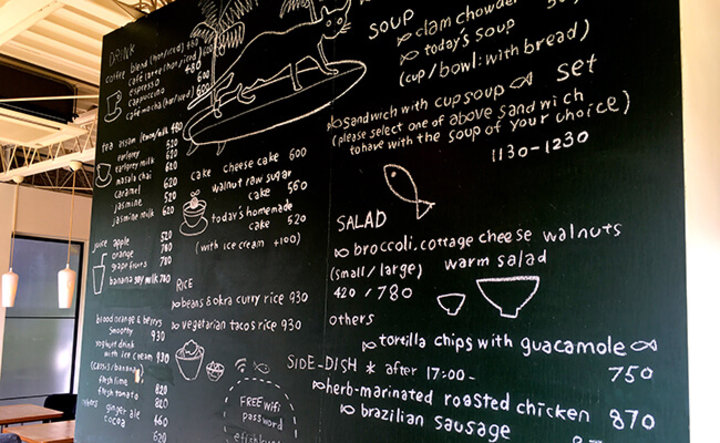 DRINK
coffee blend (hot/iced) 480
café latte (hot/iced) 600
espresso 480
cappuccino 600
café mocha (hot/iced)
tea assam lemon/milk 480
earlgrey 520
earlgrey milk 620
masala chai 620
caramel 620
jasmine 520
jasmine milk 620
juice apple 520
orange 780
grape fruits 780
banana soy milk 780
blood orange & berrys
smoothy 930
yoghurt drink
with ice cream 930
(cassis/banana)
fresh lime 820
fresh tomato 820
others ginger ale 520
cocoa 660
620
cake cheese cake 600
walnut raw sugar
cake 560
today's homemade
cake 520
(with ice cream +100)
RICE
beans & okra curry rice 930
vegetarian tacos rice 930
FREE wifi
password
SOUP
clam chowder
today's soup
(cup/bowl: with bread)
set
Sandwich with cup soup
(please select one of above sandwich
to have with the soup of your choice)
1130-1230
SALAD
broccoli, cottage cheese walnuts
(small/large) warm salad
420 / 780
others
tortilla chips with guacamole
750
SIDE-DISH * after 17:00-
herb-marinated roasted chicken 870
brazilian sausage 870